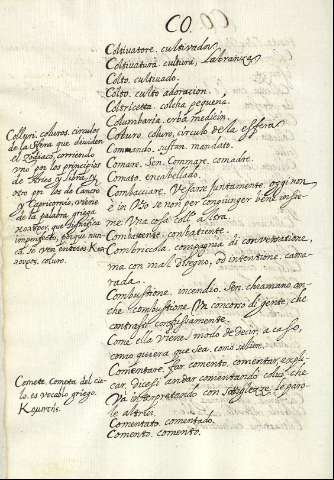 CO.
Coltivatore. cultivador
Coltivatura. cultura, Labranza
Colto. cultivado.
Colto. culto adoracion.
Coltricetta. colcha pequeña.
Columbaria. erba medicin
Coluro. coluro, circulo de la esfera
Commando, mandato.
Comare. Sen. Commare. comadre.
Comato. encabellado.
Combaciare. Vesarse juntamente. oggi non
è in Vso se non per congiunger bene insie
me Vna cosa coll' altra.
Combattente. combatiente.
Combriccola. compagnia di conversatione,
ma con mal disegno, od intentione, cama
rada.
Combustione. incendio. Sen. chiamano an
che combustione Vn concorso di gente, che
contrasti confusamente.
Come ella viene. modo de decir, a caso,
como quiera que sea. como saliere.
Comentare. far comento, comentar, expli
car. dicesi andar comentando colui che
Và interpretando con sottigliezze le paro
le altrui.
Comentato. comentado.
Comento. comento.
Colluri. coluros, circulos
de la Sfera que dividen
el Zodiaco, corriendo
vno por los principios
de Aries y Libra, y
otro por los de Cancro
y Capricornio, viene
de la palabra griega
que significa
imperfecto, porque nun
ca se ven enteros
coluro.
Comete. Cometa del cie
lo. es vocablo griego.
Κομήτης.